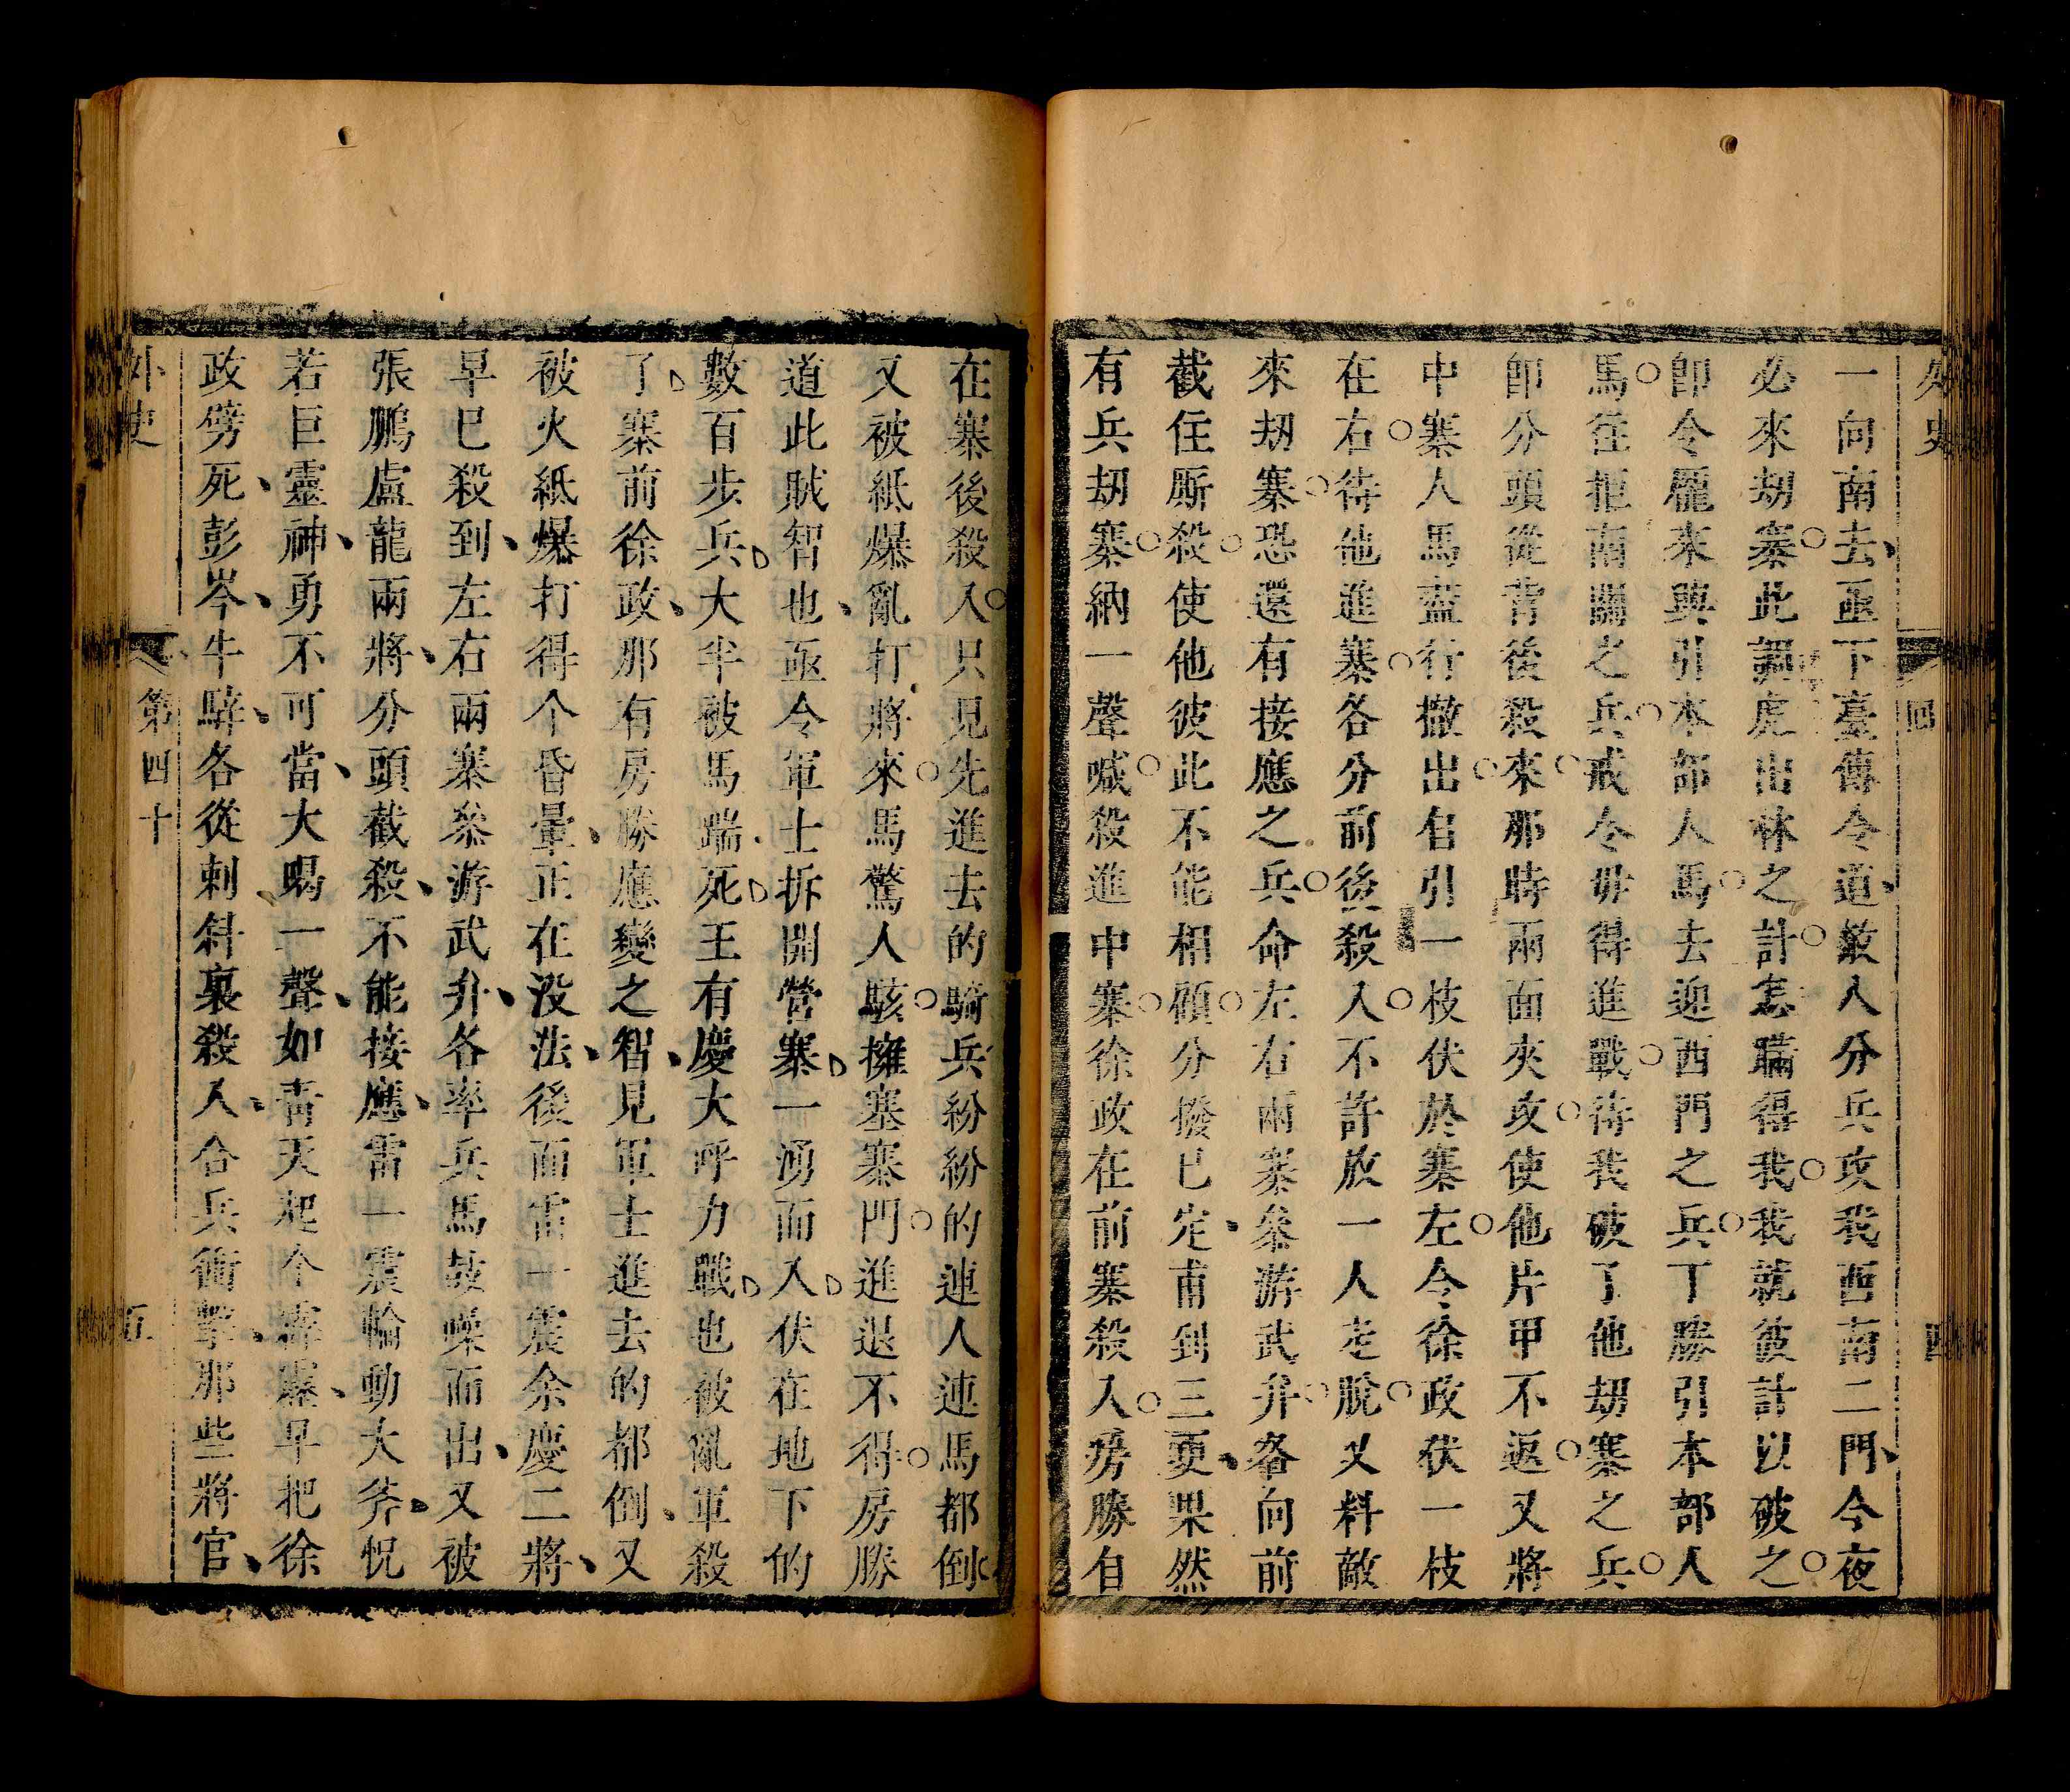 外史
回
四
一向南去亟下臺傳令道敵人分兵攻我西南二門今夜
必來刼寨此調虎出林之計怎瞞得我我就彼計以破之
卽令厖來興引本部人馬去迎西門之兵丁勝引本部人
馬往拒南關之兵戒令毋得進戰待我破了他刼寨之兵
卽分頭從背後殺來那時兩面夾攻使他片甲不返又將
中寨人馬蓋行撤出自引一枝伏於寨左令徐政伏一枝
在右待他進寨各分前後殺入不許放一人走脫又料敵
來刼寨恐還有接應之兵命左右兩寨叅游武弁各向前
截住厮殺使他彼此不能相顧分撥已定甫到三更果然
有兵刼寨納一聲喊殺進中寨徐政在前寨殺入房勝自
在寨後殺入只見先進去的騎兵紛紛的連人連馬都倒
又被紙爆亂打將來馬驚人駭擁塞寨門進退不得房勝
道此賊智也亟令軍士拆開營寨一湧而入伏在地下的
數百步兵大半被馬踹死王有慶大呼力戰也被亂軍殺
了寨前徐政那有房勝應變之智見軍士進去的都倒又
被火紙爆打得个昏暈正在没法後面雷一震余慶二將
早已殺到左右兩寨叅游武弁各率兵馬鼓噪而出又被
張鵬盧龍兩將分頭截殺不能接應雷一震輪動大斧怳
若巨靈神勇不可當大喝一聲如靑天起个霹靂早把徐
政劈死彭岑牛騂各從刺斜裏殺入合兵衝擊那些將官
外史
第四十
五